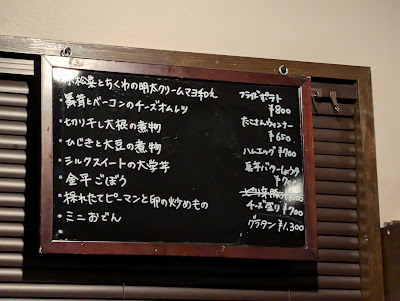 小松菜とちくわの明太クリームマヨ和え
・長芋とベーコンのチーズオムレツ
・切り干し大根の煮物
・ひじきと大豆の煮物
・シルクスイートの大学芋
・金平ごぼう
・採れたてピーマンと卵の炒めもの
・ミニおでん
フライドポテト
¥800
たこさんウィンナー
¥650
ハムエッグ ¥700
長芋バターしょうゆ
チーズ盛り ¥700
グラタン ¥1,300